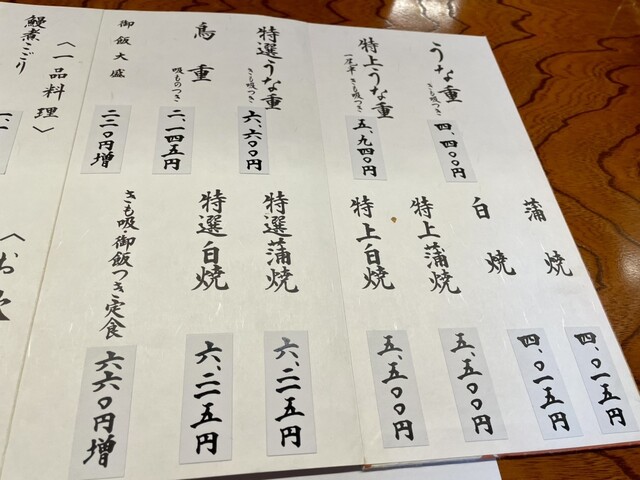 うな重
きも吸つき
四、四〇〇円
特上うな重
一尾半 きも吸つき
五、九四〇円
特選うな重
きも吸つき
六、六〇〇円
鳥重
吸ものつき
二、一四五円
御飯大盛
二二〇円増
蒲焼
四、〇一五円
白焼
四、〇一五円
特上蒲焼
五、五〇〇円
特上白焼
五、五〇〇円
特選蒲焼
六、二一五円
特選白焼
六、二一五円
きも吸・御飯つき定食
六六〇円増
〈一品料理〉
鰻煮こごり